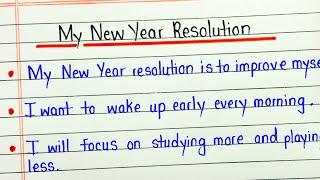 My New Year Resolution
My New Year resolution is to improve myse
I want to wake up early every morning.
I will focus on studying more and playing
less.